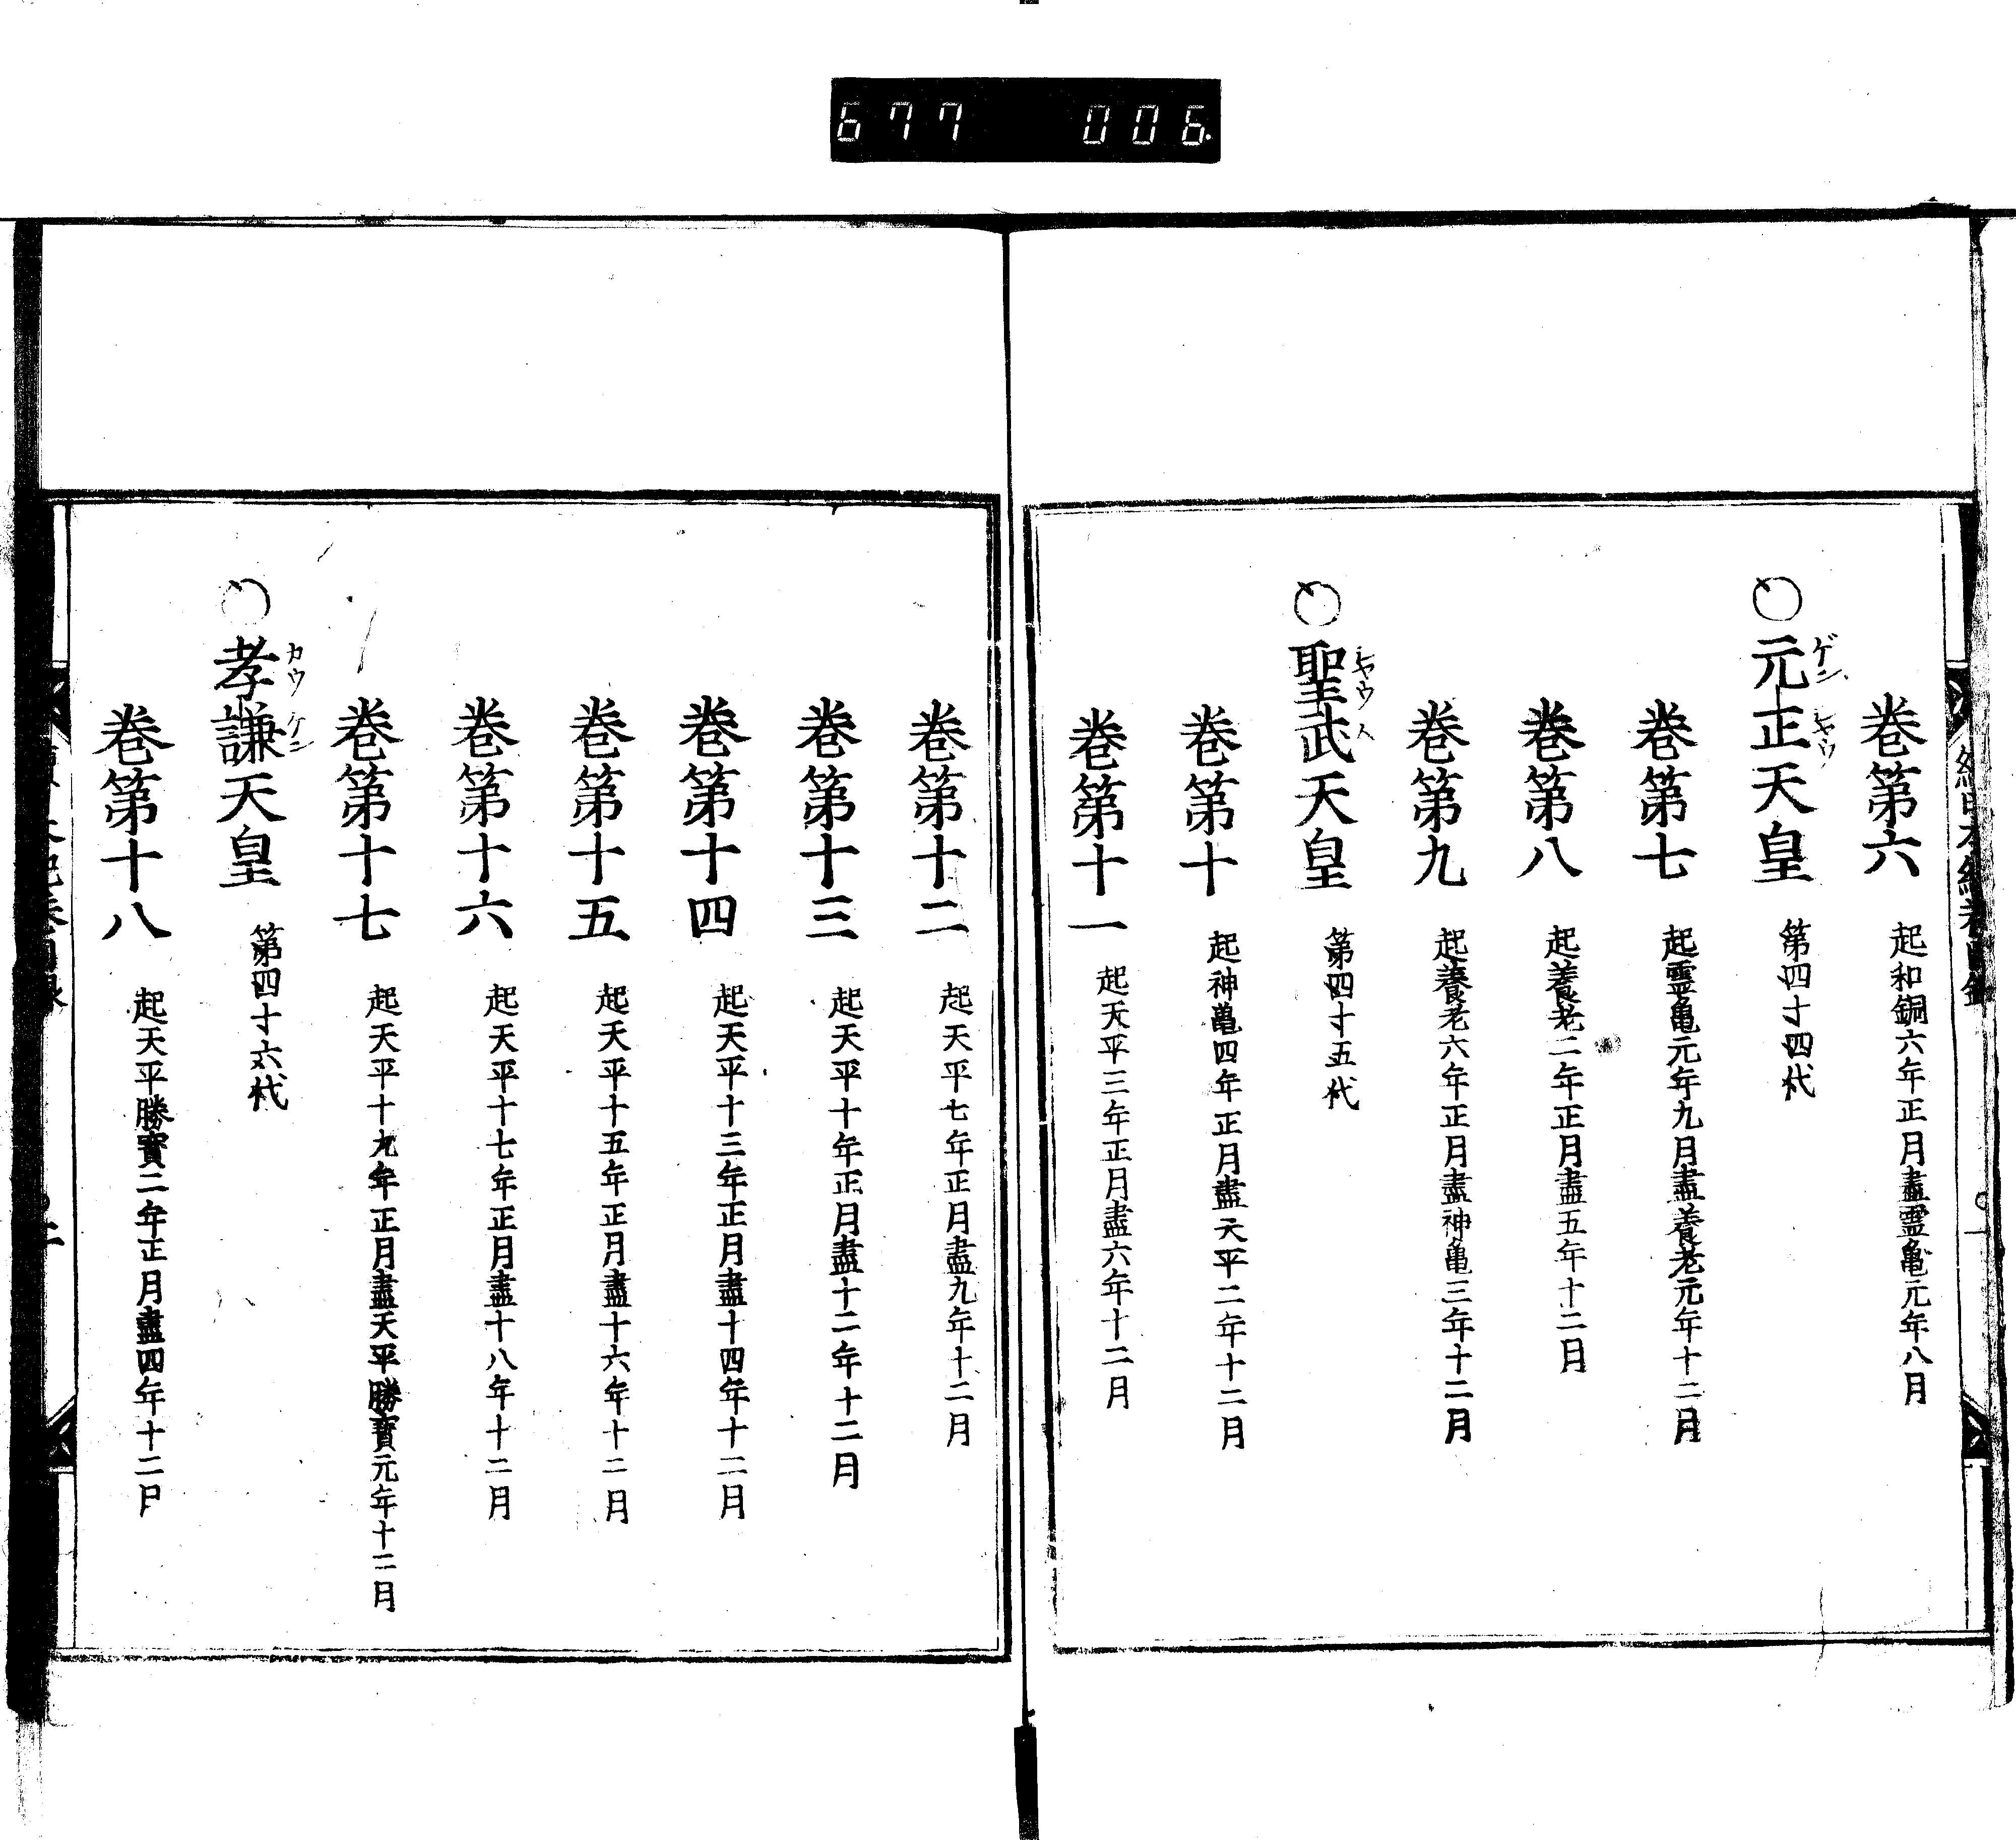 677 006.
巻第六 起和銅六年正月盡霊亀元年八月
元正天皇 第四十四代
ゲン シヤウ
巻第七 起霊亀元年九月盡養老元年十二月
巻第八 起養老二年正月盡五年十二月
巻第九 起養老六年正月盡神亀三年十二月
聖武天皇 第四十五代
シヤウ
巻第十 起神亀四年正月盡天平二年十二月
巻第十一 起天平三年正月盡六年十二月
巻第十二 起天平七年正月盡九年十二月
巻第十三 起天平十年正月盡十二年十二月
巻第十四 起天平十三年正月盡十四年十二月
巻第十五 起天平十五年正月盡十六年十二月
巻第十六 起天平十七年正月盡十八年十二月
巻第十七 起天平十九年正月盡天平勝寳元年十二月
孝謙天皇 第四十六代
カウ ケン
巻第十八 起天平勝寳二年正月盡四年十二月